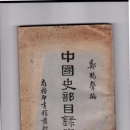 鄭鶴聲編
中國史部目錄學
商務印書館發行